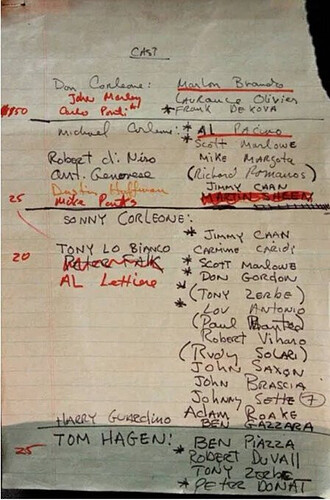 CAST
Don Corleone: Marlon Brando
John Marley Laurance Olivier
Carlo Ponti * FRANK DE KOVA
Michael Corleone: * AL PACINO
* Scott Marlowe
Robert di Niro MIKE MARGOTA
Aust. Genovese (Richard Romanos)
Dustin Hoffman JIMMY CAAN
25 Mike Parks MARTIN SHEEN
SONNY CORLEONE:
* JIMMY CAAN
TONY LO BIANCO CARMINE CARIDI
20 Peter FALK * SCOTT MARLOWE
AL Lettieri * DON GORDON
* (TONY ZERBE)
* LOU ANTONIO
(Paul
Robert Viharo
(RUDY SOLARI)
JOHN SAXON
JOHN BRASCIA
Johnny Sette 7)
Adam ROAKE
HARRY GUARDINO BEN GAZZARA
TOM HAGEN: * BEN PIAZZA
25 * ROBERT DUVALL
TONY ZERBE
* PETER DONAT